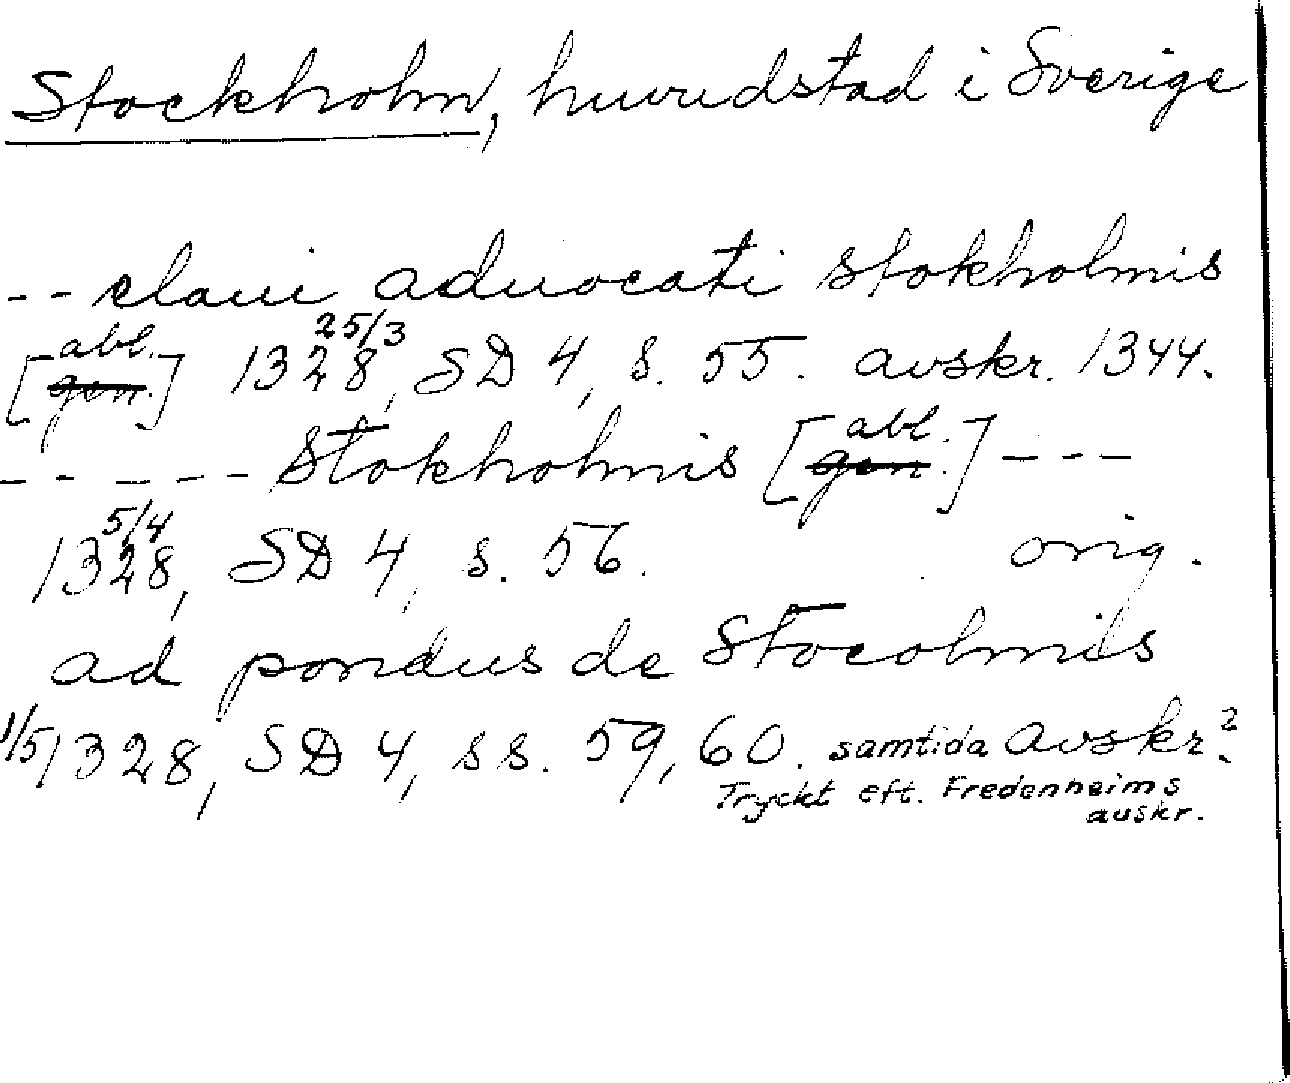 Stockholm, huvudstad i Sverige
-- claui aduocati stokholmis
[gen. abl.] 1328 25/3, SD 4, s. 55. avskr. 1344.
- - - - - - Stokholmis [gen. abl.] - - -
1328 5/4, SD 4, s. 56. orig.
ad pondus de Stocolmis
1/5 1328, SD 4, ss. 59, 60. samtida avskr.?
Tryckt eft. Fredenheims
avskr.